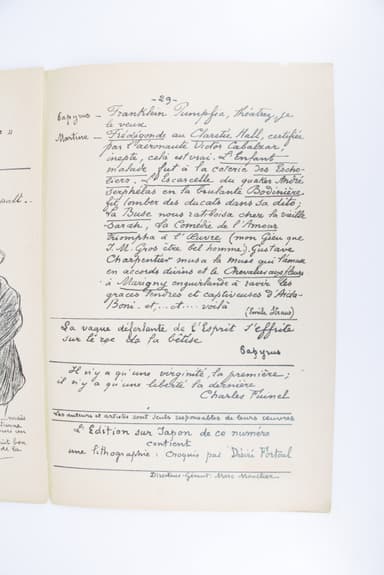 -29-
Papyrus - Franklein Pumpfia, théatrez, je
le veux
Martine - Frédégonde au Claretie Hall, certifiée
par l'aéronaute Victor Cabalzar,
inepte, cela est vrai. L'Enfant
malade fut à la coterie des Escho-
liers. L'Escarcelle du quaker André
Serphélas en la Coulante Bodinière
fit tomber des ducats dans sa dité;
La Buse nous ratiboisa chez la vieille
Sarah, La Comédie de l'Amour
triompha à l'Œuvre (mon Gieu que
J. M. Gros être bel homme). Gustave
Charpentier musa la muse qui l'amusa
en accords divins et le Chevalier aux fleurs
à Marigny enguirlande à ravir les
graces tendres et captiveuses d'Aïda
Boni. et...et.... voilà
(Emile Straus)
La vague déferlante de l'Esprit s'effrite
sur le roc de la bêtise
Papyrus
Il n'y a qu'une virginité, la première;
il n'y a qu'une liberté la dernière
Charles Fuinel
Les auteurs et artistes sont seuls responsables de leurs œuvres
L'Edition sur Japon de ce numéro
contient
une lithographie: Croquis par Désiré Fortoul
Directeur-Gérant: Marc Mouclier